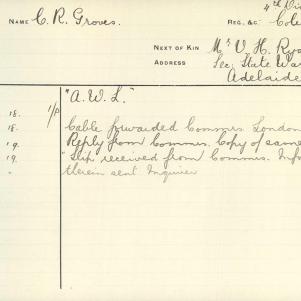 4th Div
NAME C. R. Groves. REG. &C.
NEXT OF KIN Mr V. H. Rya
ADDRESS Sec. State War
Adelaide
1/8 "A. W. L."
18.
18. Cable forwarded Commrs. London
19. Reply from Commrs. Copy of same
19. Slip received from Commrs. Info
" therein sent Inquirer